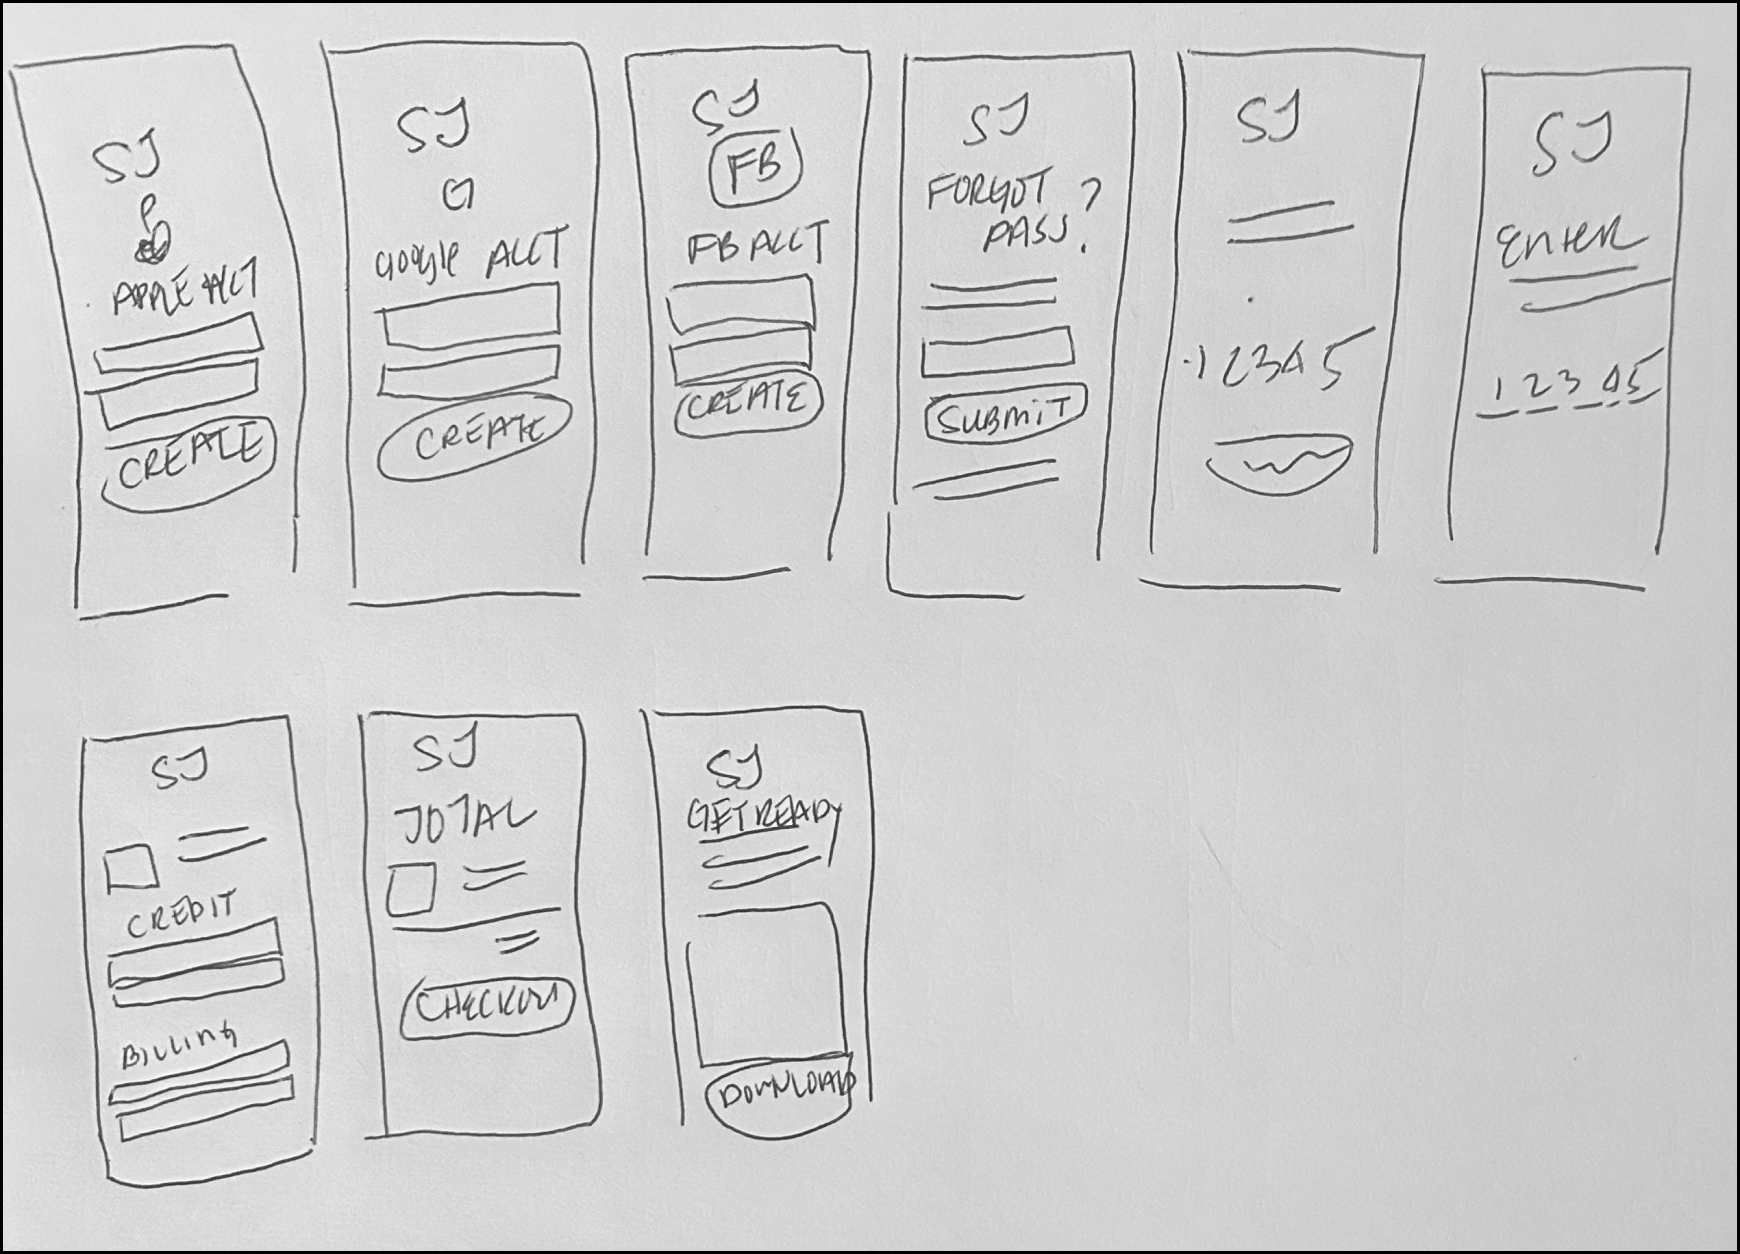 SJ
APPLE ACCT
CREATE
SJ
G
Google ACCT
CREATE
SJ
FB
FB ACCT
CREATE
SJ
FORGOT
PASS?
SUBMIT
SJ
12345
SJ
ENTER
12345
SJ
CREDIT
BILLING
SJ
TOTAL
CHECKOUT
SJ
GET READY
DOWNLOAD